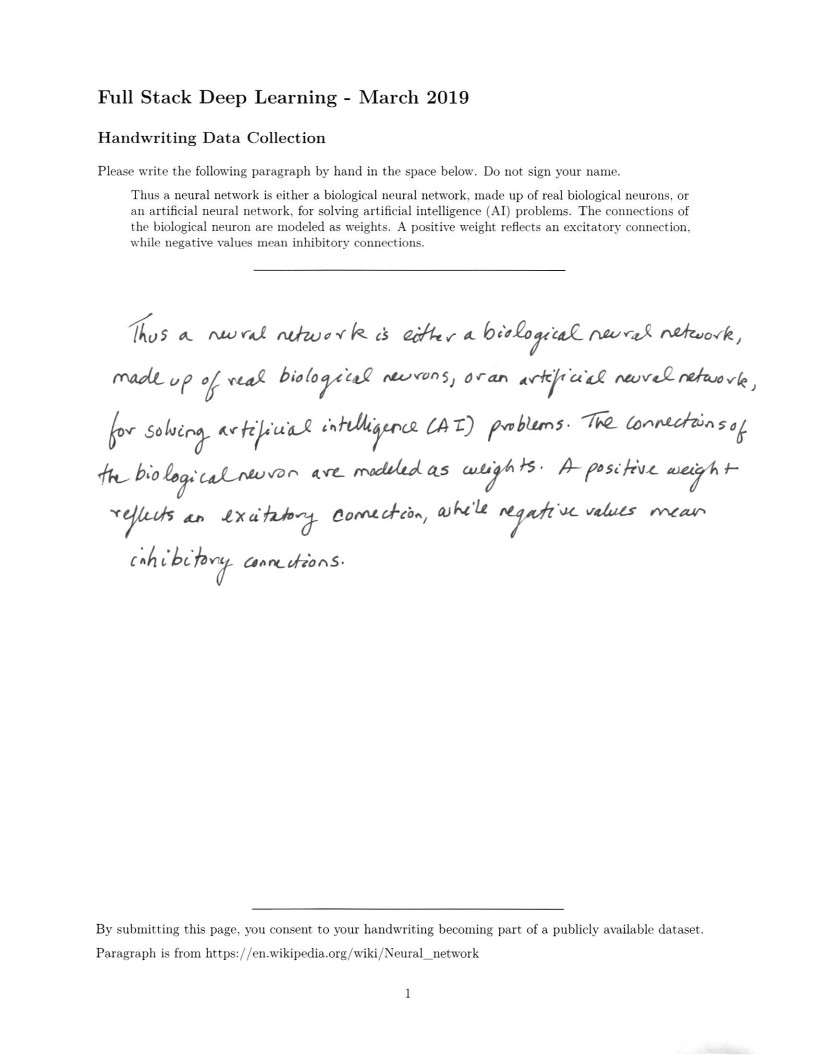 Full Stack Deep Learning - March 2019
Handwriting Data Collection
Please write the following paragraph by hand in the space below. Do not sign your name.
Thus a neural network is either a biological neural network, made up of real biological neurons, or
an artificial neural network, for solving artificial intelligence (AI) problems. The connections of
the biological neuron are modeled as weights. A positive weight reflects an excitatory connection,
while negative values mean inhibitory connections.
Thus a neural network is either a biological neural network,
made up of real biological neurons, or an artificial neural network,
for solving artificial intelligence (AI) problems. The connections of
the biological neuron are modeled as weights. A positive weight
reflects an excitatory connection, while negative values mean
inhibitory connections.
By submitting this page, you consent to your handwriting becoming part of a publicly available dataset.
Paragraph is from https://en.wikipedia.org/wiki/Neural_network
1